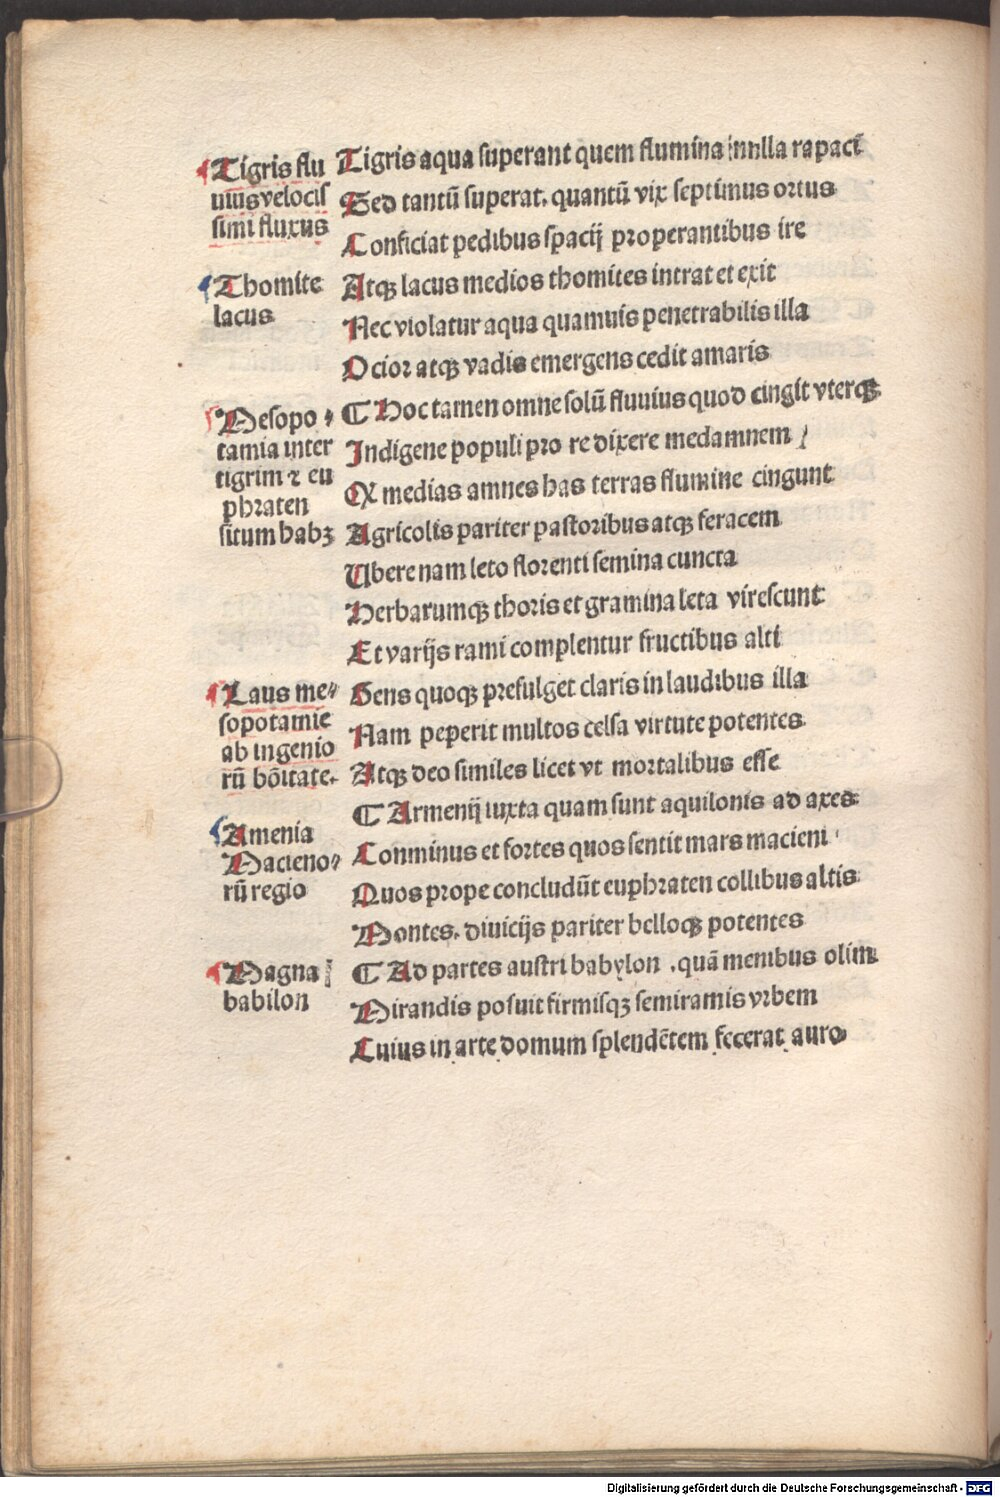 Tigris flu
uiusvelocis
simi fluxus
Thomite
lacus
Mesopo
tamia inter
tigrim ⁊ eu
phraten
situm habꝫ
Laus me⸗
sopotamie
ab ingenio
rū bōitate.
Amenia
Macieno⸗
rū regio
Magna
babilon
Tigris aqua superant quem flumina nulla rapaci
Sed tantū superat. quantū vix septimus ortus
Conficiat pedibus spacij properantibus ire
Atqꝫ lacus medios thomites intrat et exit
Nec violatur aqua quamuis penetrabilis illa
Ocior atqꝫ vadis emergens cedit amaris
¶ Hoc tamen omne solū fluuius quod cingit vterqꝫ
Indigene populi pro re dixere medamnem
Qꝫ medias amnes has terras flumine cingunt
Agricolis pariter pastoribus atqꝫ feracem
Ubere nam leto florenti semina cuncta
Herbarumqꝫ thoris et gramina leta virescunt
Et varijs rami complentur fructibus alti
Gens quoqꝫ prefulget claris in laudibus illa
Nam peperit multos celsa virtute potentes
Atqꝫ deo similes licet vt mortalibus esse
¶ Armenij iuxta quam sunt aquilonis ad axes
Conminus et fortes quos sentit mars macieni
Quos prope concludūt euphraten collibus altis
Montes. diuicijs pariter belloqꝫ potentes
¶ Ad partes austri babylon .quā menibus olim
Mirandis posuit firmisqꝫ semiramis vrbem
Cuius in arte domum splendētem fecerat auro
Digitalisierung gefördert durch die Deutsche Forschungsgemeinschaft - DFG